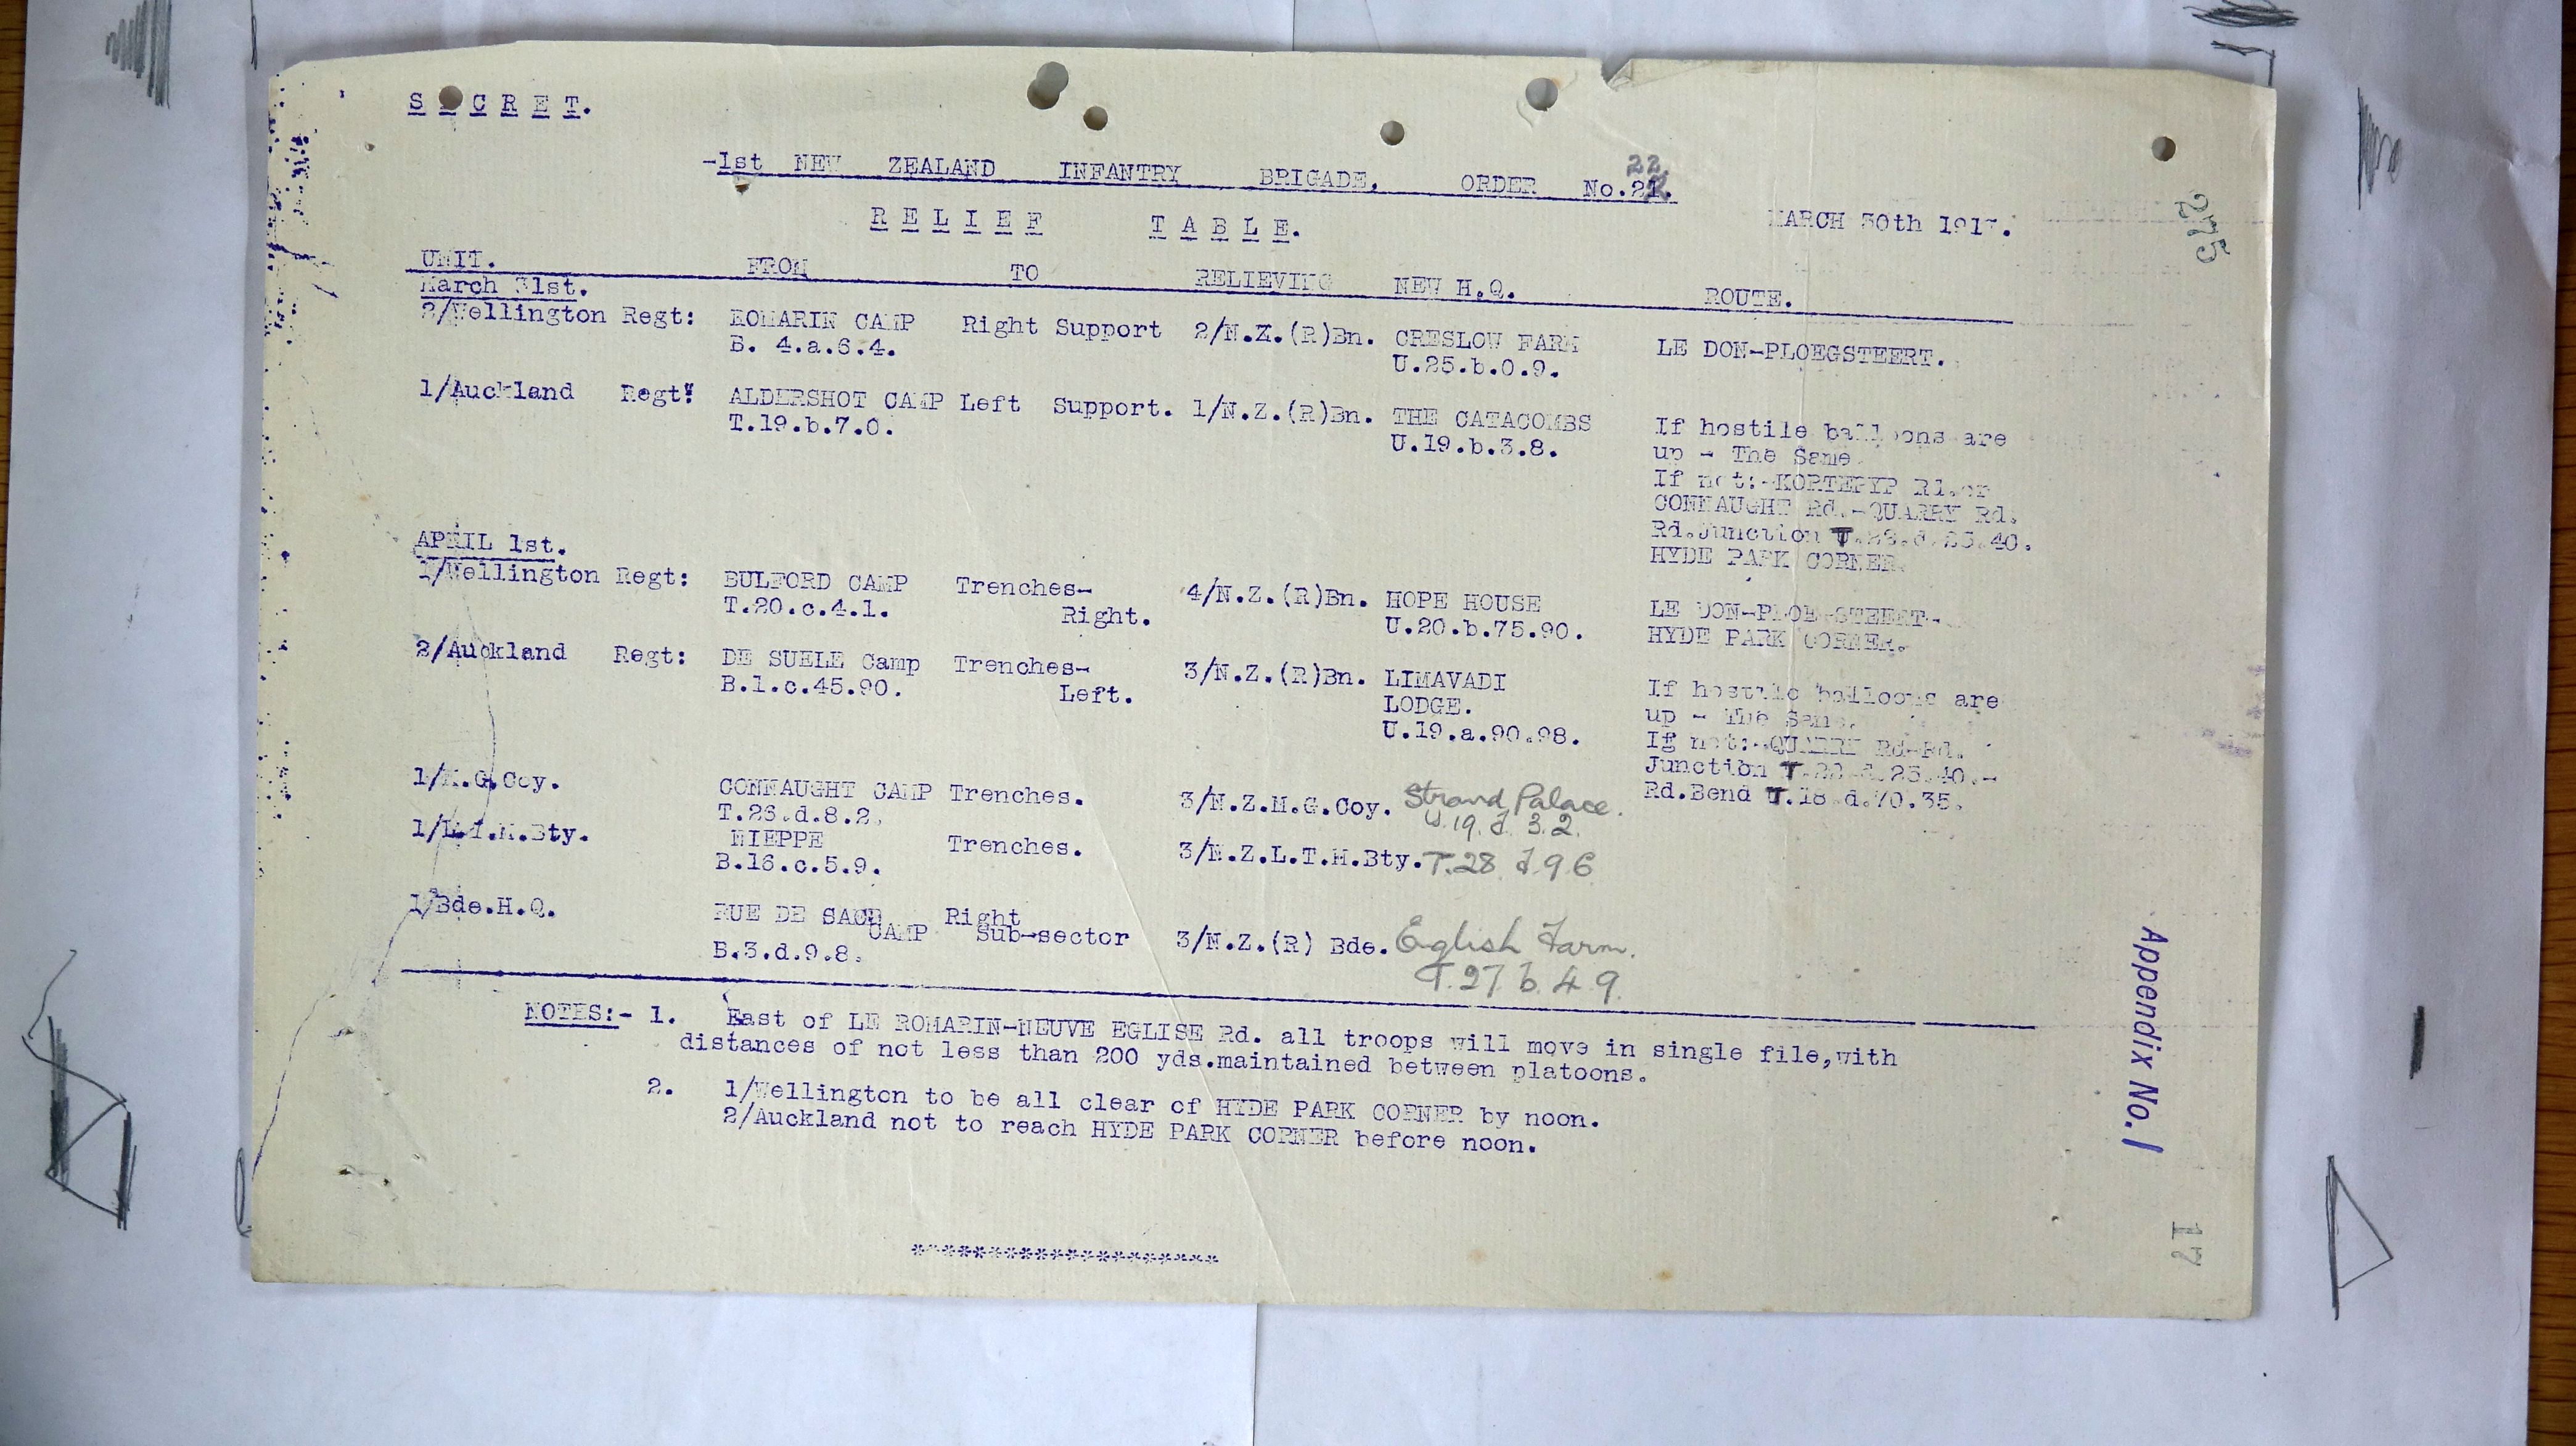 SECRET.
-1st NEW ZEALAND INFANTRY BRIGADE. ORDER No.21.
22.
RELIEF TABLE.
MARCH 30th 1917.
275
UNIT. FROM TO RELIEVING NEW H.Q. ROUTE.
March 31st.
2/Wellington Regt: ROMARIN CAMP Right Support 2/N.Z.(R)Bn. CRESLOW FARM LE DON-PLOEGSTEERT.
B. 4.a.6.4. U.25.b.0.9.
1/Auckland Regt: ALDERSHOT CAMP Left Support. 1/N.Z.(R)Bn. THE CATACOMBS If hostile balloons are
T.19.b.7.0. U.19.b.3.8. up - The Same.
If not:-KORTEPYP Rd.or
CONNAUGHT Rd.-QUARRY Rd.
Rd.Junction T. .25.40.
HYDE PARK CORNER.
APRIL 1st.
1/Wellington Regt: BULFORD CAMP Trenches- 4/N.Z.(R)Bn. HOPE HOUSE LE DON-PLOEGSTEERT-
T.20.c.4.1. Right. U.20.b.75.90. HYDE PARK CORNER.
2/Auckland Regt: DE SUELE Camp Trenches- 3/N.Z.(R)Bn. LIMAVADI If hostile balloons are
B.1.c.45.90. Left. LODGE. up - The Same.
U.19.a.90.98. If not:-QUARRY Rd-Rd.
Junction T. .25.40.-
Rd.Bend T.18.d.70.35.
1/M.G.Coy. CONNAUGHT CAMP Trenches. 3/N.Z.M.G.Coy. Strand Palace.
T.26.d.8.2. U.19.d.3.2.
1/L.T.M.Bty. NIEPPE Trenches. 3/N.Z.L.T.M.Bty. T.28.d.9.6
B.16.c.5.9.
1/Bde.H.Q. RUE DE SACQ Right 3/N.Z.(R) Bde. English Farm.
CAMP Sub-sector
B.3.d.9.8. T.27.b.4.9.
NOTES:- 1. East of LE ROMARIN-NEUVE EGLISE Rd. all troops will move in single file,with
distances of not less than 200 yds.maintained between platoons.
2. 1/Wellington to be all clear of HYDE PARK CORNER by noon.
2/Auckland not to reach HYDE PARK CORNER before noon.
Appendix No. 1
17
********************